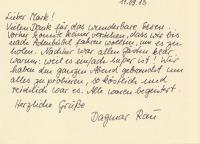 11.09.03
Lieber Mark!
Vielen Dank für das wunderbare Essen.
Vorher konnte keiner verstehen, daß wir bis
nach Adenbüttel fahren wollten, um es zu
holen. Nachher war allen Gästen klar
warum: weil es einfach super ist! Wir
haben den ganzen Abend gebraucht um
alles zu probieren, so köstlich und
reichlich war es. Alle waren begeistert.
Herzliche Grüße
Dagmar Rau